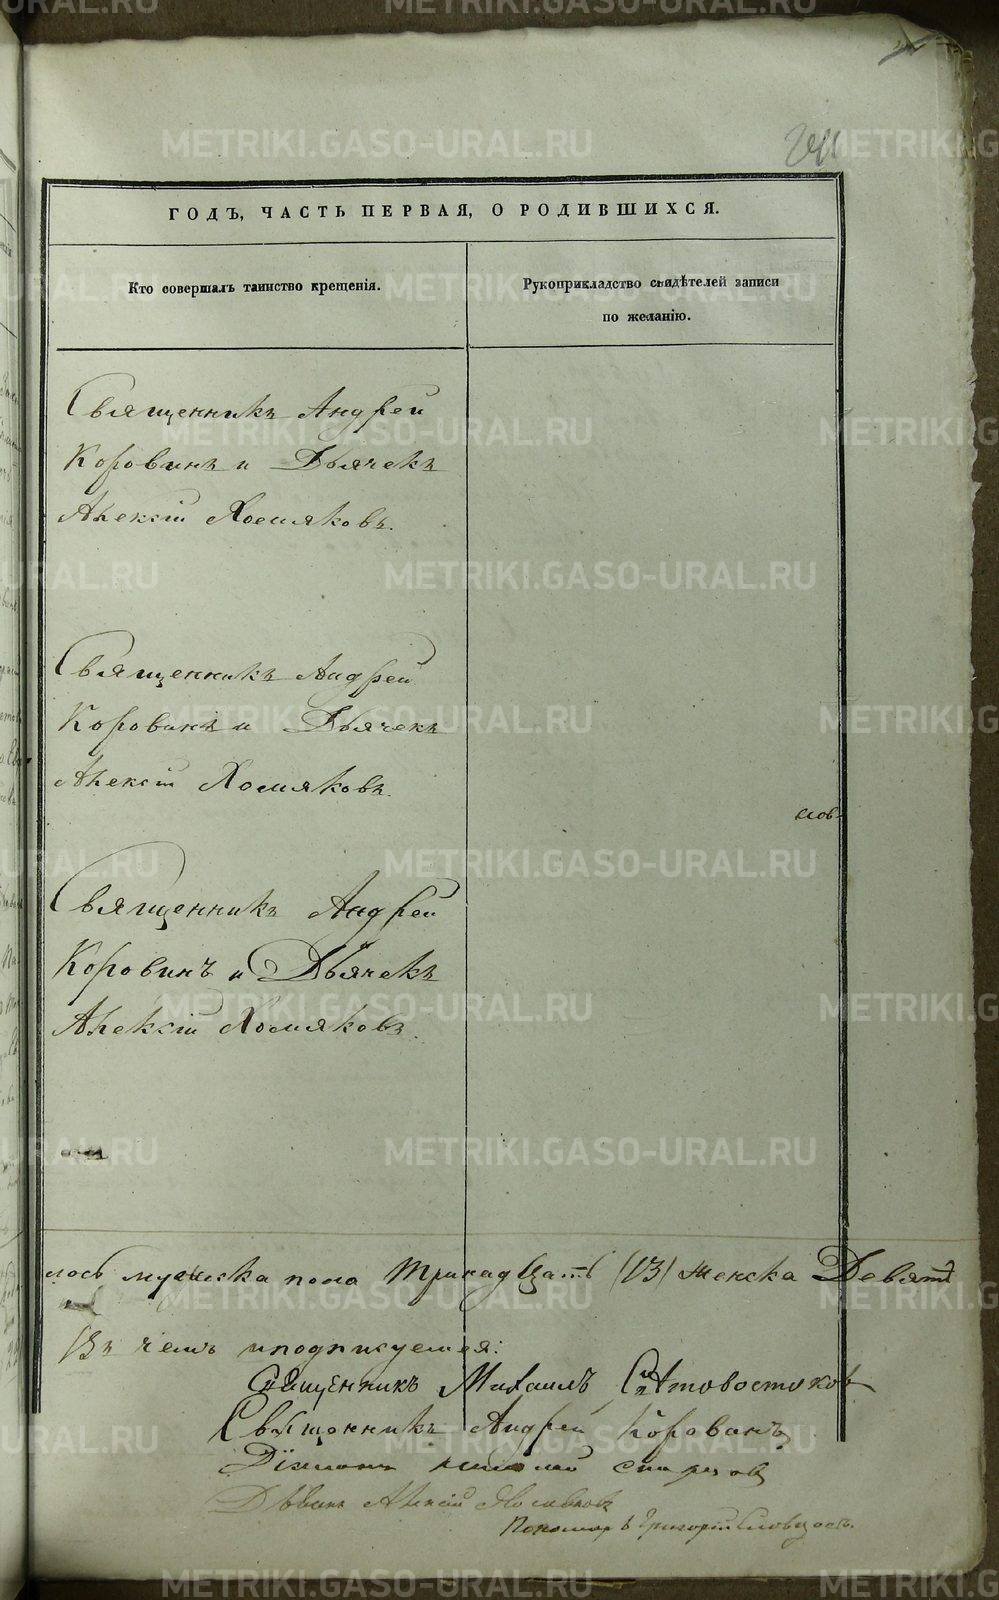 ГОДЪ, ЧАСТЬ ПЕРВАЯ, О РОДИВШИХСЯ.
Кто совершалъ таинство крещенія.
Рукоприкладство свидѣтелей записи
по желанію.
Священникъ Андрей
Коровинъ и Дьячекъ
Алексій Хомяковъ.
Священникъ Андрей
Коровинъ и Дьячекъ
Алексій Хомяковъ.
Священникъ Андрей
Коровинъ и Дьячекъ
Алексій Хомяковъ.
лось мужеска пола тринадцать (13) женска Девять
Въ чемъ и подписуемся:
Священникъ Михаилъ
Священникъ Андрей Коровинъ
Діаконъ
Дьячекъ Алексій Хомяковъ
Пономарь Григорій Словцовъ.
METRIKI.GASO-URAL.RU